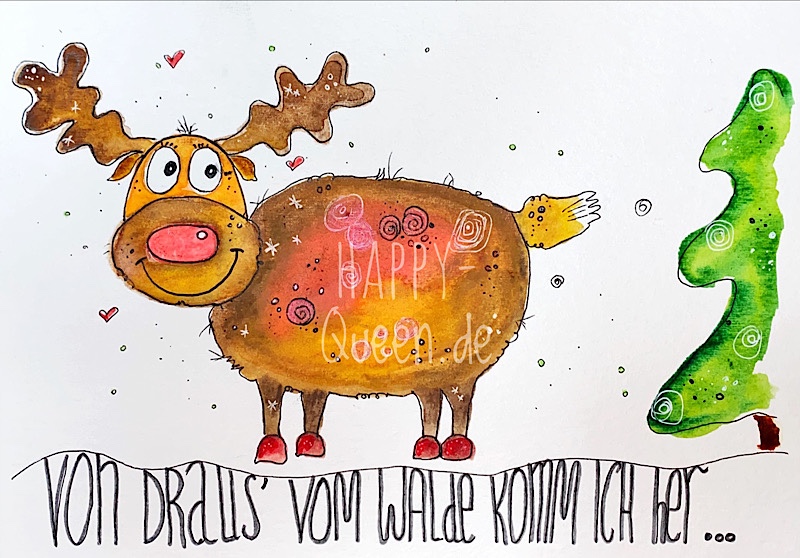 HAPPY-
Queen.de
VON DRAUS' VOM WALDE KOMM ICH her...